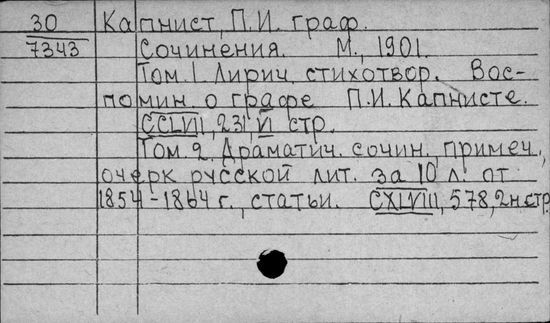 30 Капнист, П.И. граф.
7343 Сочинения. М., 1901.
Том. 1. Лирич. стихотвор. Вос-
помин. о графе П.И. Капнисте.
CCLVII, 231, II стр.
Том. 2. Драматич. сочин., примеч.,
очерк русской лит. за 10 л. от
1854-1864 г., статьи. CXLVIII, 578, 2 н.стр.